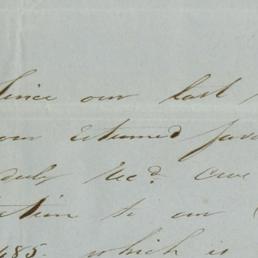 Since our last
our esteemed favo
duly Rec.d
tion to our
485. which is